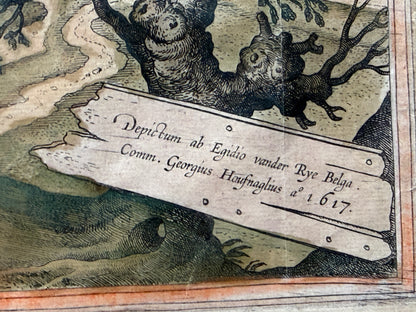 Depictum ab Egidio vander Rye Belga
Comm. Georgius Houfnaglius aº 1617.